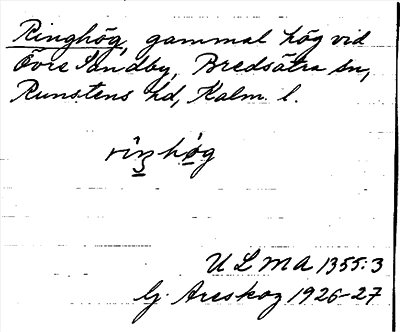 Ringhög, gammal hög vid
Övre Sandby, Bredsätra sn,
Runstens hd, Kalm. l.
rîn̡hög
ULMA 1355:3
G. Areskog 1926-27